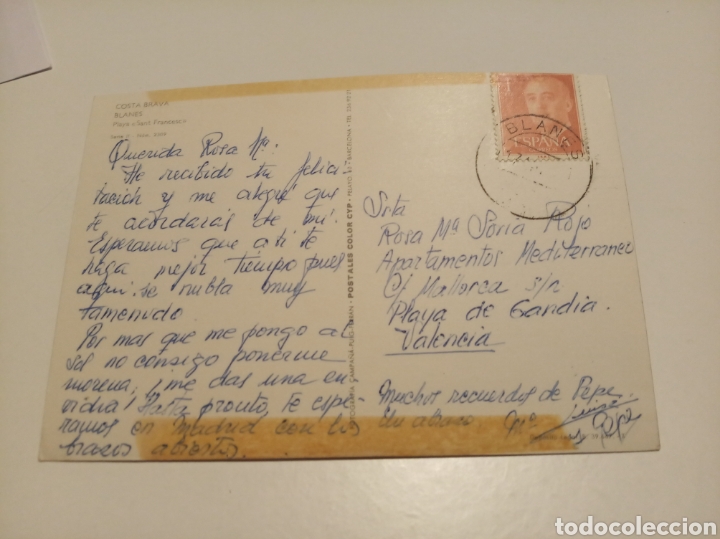 COSTA BRAVA
BLANES
Playa «Sant Francesc»
Serie II - Núm.
Querida Rosa Mª:
He recibido tu felici
tación y me alegré que
te acordaras de mí.
Esperamos que a ti te
haga mejor tiempo pues
aquí se nubla muy
tamenudo
Por mas que me pongo al
sol no consigo ponerme
morena; ¡me das una en
vidia! Hasta pronto, te espe
ramos en Madrid con los
brazos abiertos.
POSTALES COLOR CYP
BARCELONA
BLANES
ESPAÑA
Srta
Rosa Mª Soria Rojo
Apartamentos Mediterraneo
C/ Mallorca s/n
Playa de Gandia.
Valencia
Muchos recuerdos de Pepe.
Un abrazo Mª
todocoleccion